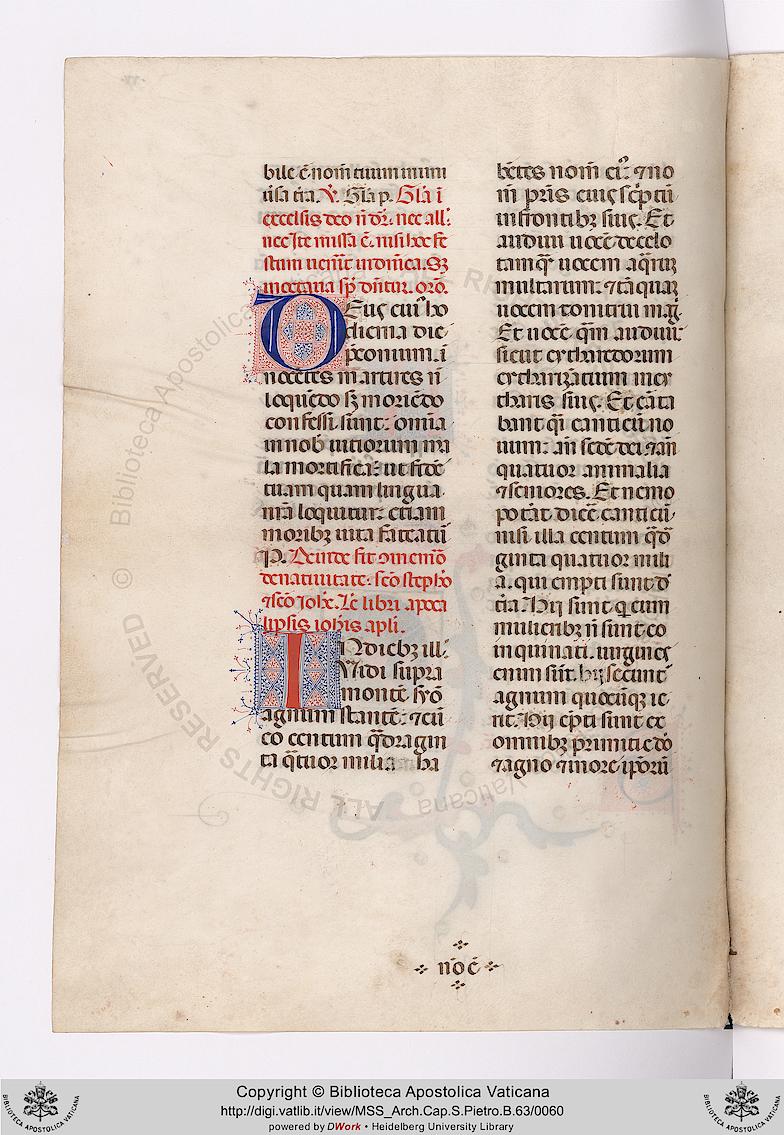 bile ē nom̄ tuum in uni
ūsa t̄ra. V̄. Gl̄a p. Gl̄a ī
excelsis deo n̄ dr̄. nec all̄.
nec Ite missa ē. nisi hoc fe
stum uen̄it in dn̄ica. Sz
in octaua sp̄ dn̄tur. oro.
DEus cui⁹ ho
dierna die
p̄conium. ī
nocētes martires n̄
loquēdo sz moriēdo
confessi sunt: omīa
in nob̄ uitiorum ma
la mortifica: ut fidē
tuam quam lingua
nr̄a loquitur: etiam
moribꝫ uita fateatur̄
P. Deinde fit ɔmemō
de natiuitate. sc̄o stepho
⁊ sc̄o Ioh̄e. Le libri apoca
lipsis ioh̄is apl̄i.
IN diebꝫ ill̄.
Vidi supra
montē syō
agnum stantē: ⁊ cū
eo centum q̄dragin
ta q̄tuor milia ha
bētes nom̄ ei⁹. ⁊ no
m̄ pr̄is eius sc̄ptū
in frontibꝫ suis. Et
audiui uocē de celo
tamq̄ uocem aq̄rꝫ
multarum: ⁊ tāquaꝫ
uocem tonitrui maḡ.
Et uocē q̄m audiui:
sicut cytharedorum
cytharizātium in cy
tharis suis. Et cāta
bant q̄i canticū no
uum: an̄ sedē dei ⁊ an̄
quatuor animalia
⁊ seniores. Et nemo
pot̄at dicē canticū.
nisi illa centum q̄d̄
ginta quatuor mili
a. qui empti sunt d̄
t̄ra. Hij sunt q̄ cum
mulieribꝫ n̄ sunt co
inquinati. uirgines
enim sūt. hij secunt̄
agnum quocūqꝫ ie
rit. Hij ēpti sunt ex
omnibꝫ primitie dō
⁊ agno ⁊ in ore ipōrū
nōc̄
Copyright © Biblioteca Apostolica Vaticana
http://digi.vatlib.it/view/MSS_Arch.Cap.S.Pietro.B.63/0060
powered by DWork • Heidelberg University Library
© Biblioteca Apostolica Vaticana
ALL RIGHTS RESERVED